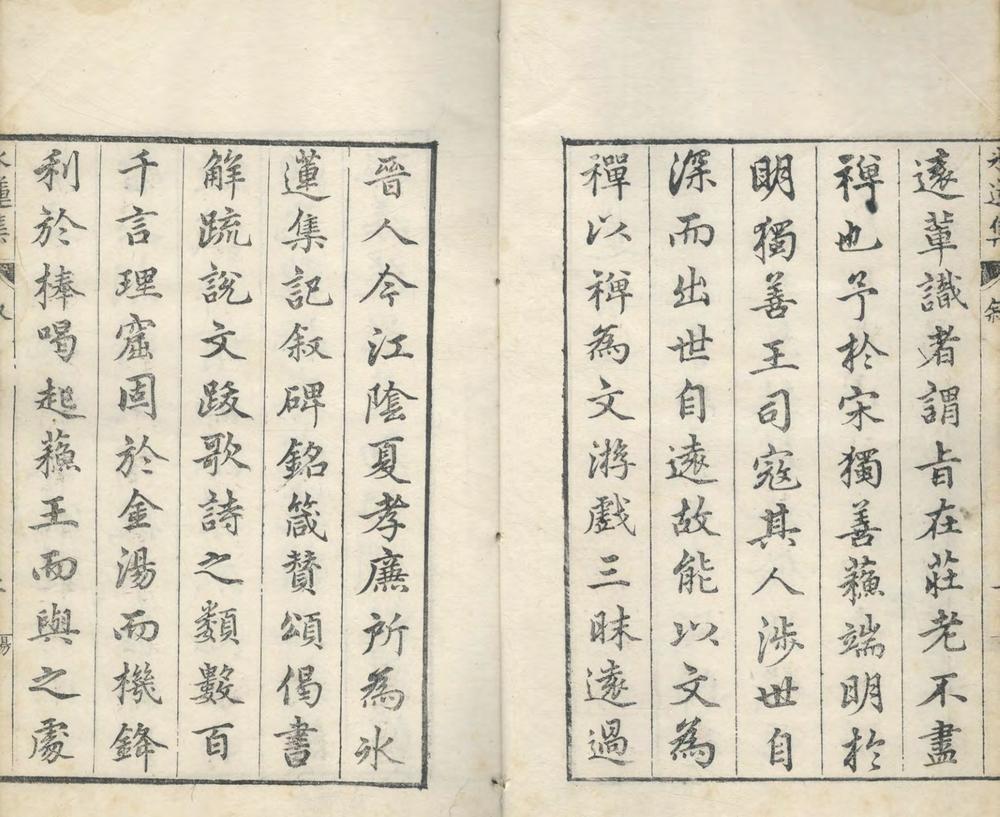 遠輩識者謂旨在莊老不盡
禅也予於宋獨善蘓端明於
明獨善王司寇其人渉世自
深而出世自遠故能以文為
禪以禅為文游戲三昧遠過
晉人今江陰夏孝廉所為氷
蓮集記叙碑銘箴賛頌偈書
解疏説文跋歌詩之類數百
千言理窟固於金湯而機鋒
利於棒喝起蘓王而與之處
氷蓮集
叙